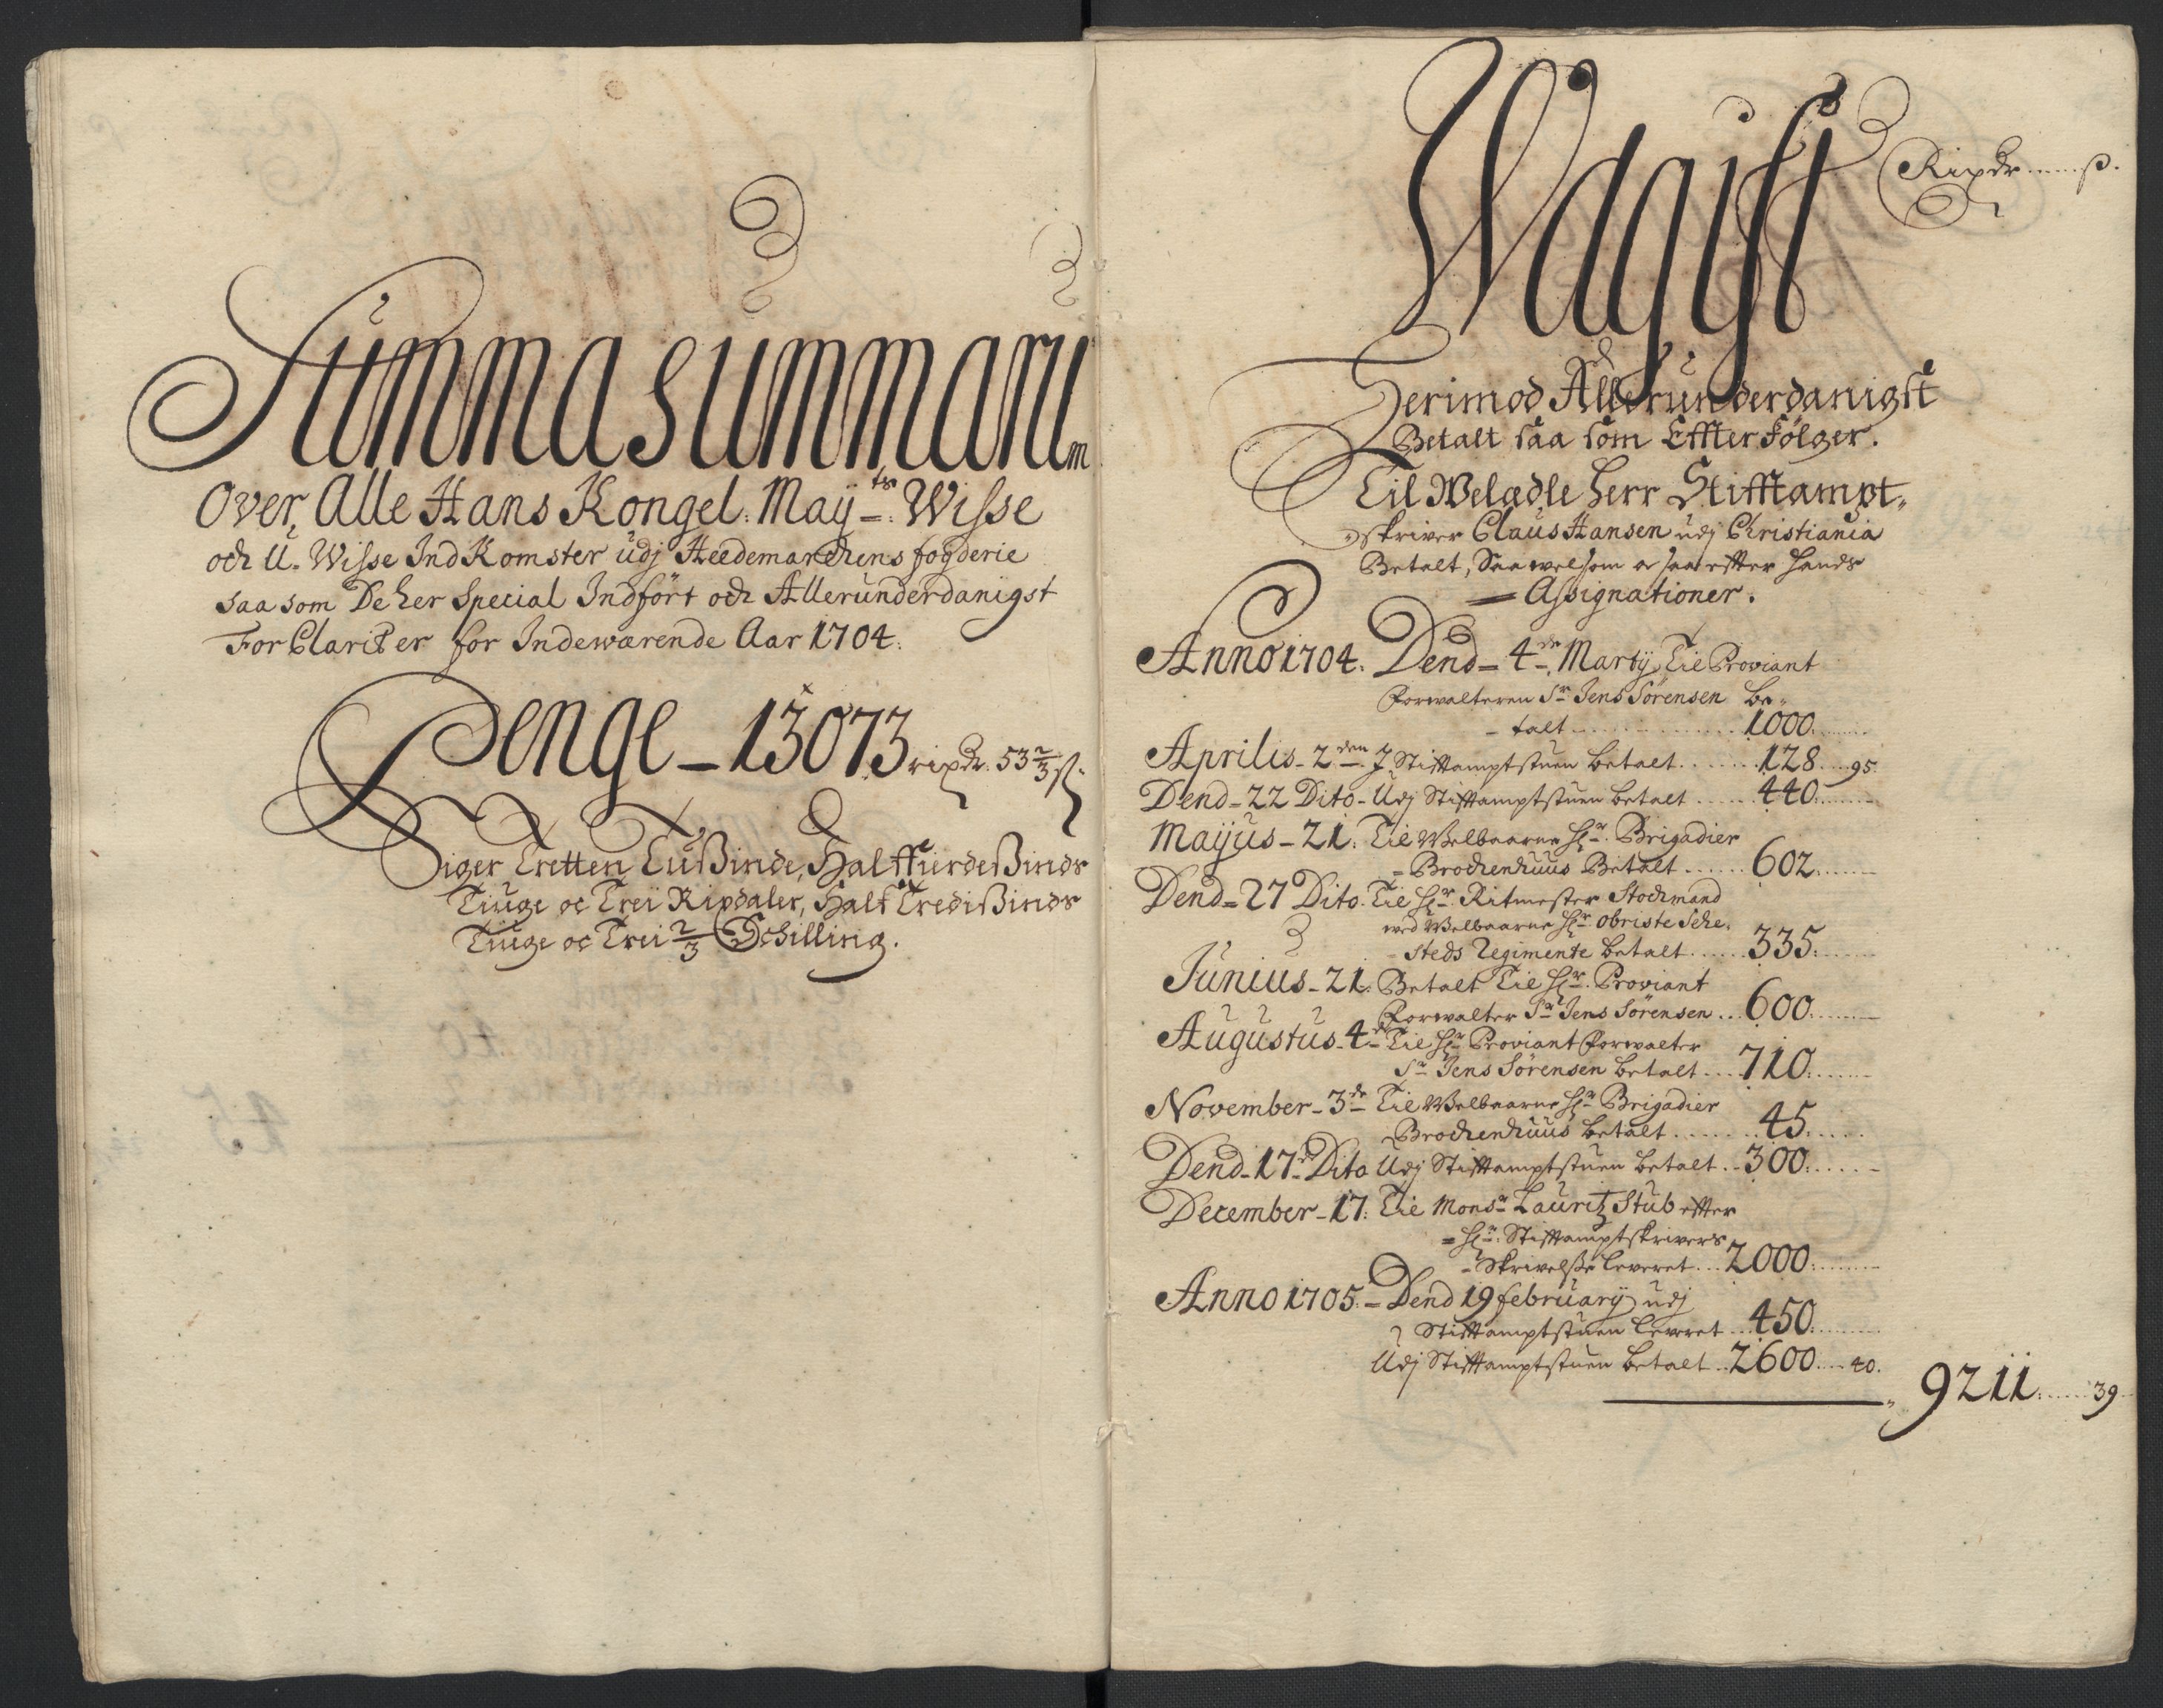 Summa Summarum
Over, Alle Hans Kongel: May:ts Wisse
och U. Wisse IndKomster udj Heedemarchens fogderie
saa som De her Special Indfört och Allerunderdanigst
For Clarißer for Indewærende Aar 1704.
Penge – 13073 ripdr. 53 2/3 ß.
Siger Tretten Tußinde, Halffierdeßinds
Tiuge oc Trei Ripdaler, Halff Tredißinds
Tiuge oc Trei 2/3 Schilling.
Wdgift
Ripdr ...... ß.
Derimod Allerunderdanigst
Betalt saa som Effter Fölger.
Til Welædle Herr Stifftampt„
skriver Claus Hansen udj Christiania
Betalt, Saa welsom oc saa effter hands
Assignationer.
Anno 1704. Dend 4de Martij, Til Proviant
Forwalteren Sr Jens Sörensen be„
talt ...... 1000 ......
Aprilis 2den J Stifftamptstuen betalt ...... 128 ... 95.
Dend 22 Dito Udj Stifftamptstuen betalt ...... 440 ......
Mayus 21. Til Welbaarne Hr. Brigadier
Brochenhuus Betalt ...... 602 ......
Dend 27 Dito. Til Hr. Ritmester Stochmand
wed Welbaarne Hr Obriste Sche„
steds Regimente betalt ...... 335 ......
Junius 21. Betalt Til Hr. Proviant
Forwalter Sr Jens Sörensen ... 600 ......
Augustus 4de Til Hr Proviant Forwalter
Sr Jens Sörensen betalt ... 710 ......
November 3de Til Welbaarne Hr Brigadier
Brochenhuus betalt ...... 45 ......
Dend 17de Dito Udj Stifftamptstuen betalt .. 300 ......
December 17. Til Monsr Lauritz Stub effter
Hr. Stifftamptskrivers
Skrivelße leveret ... 2000 ......
Anno 1705. Dend 19 february udj
Stifftamptstuen leveret ... 450 ......
Udj Stifftamptstuen betalt .. 2600 ... 40.
9211 ...... 39